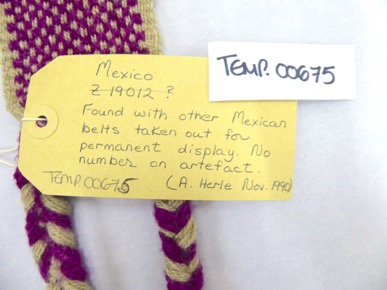 Mexico
Z 19012 ?
Found with other Mexican
belts taken out for
permanent display. No
number on artefact.
TEMP.00675
(A. Herle Nov. 1990)
TEMP. 00675